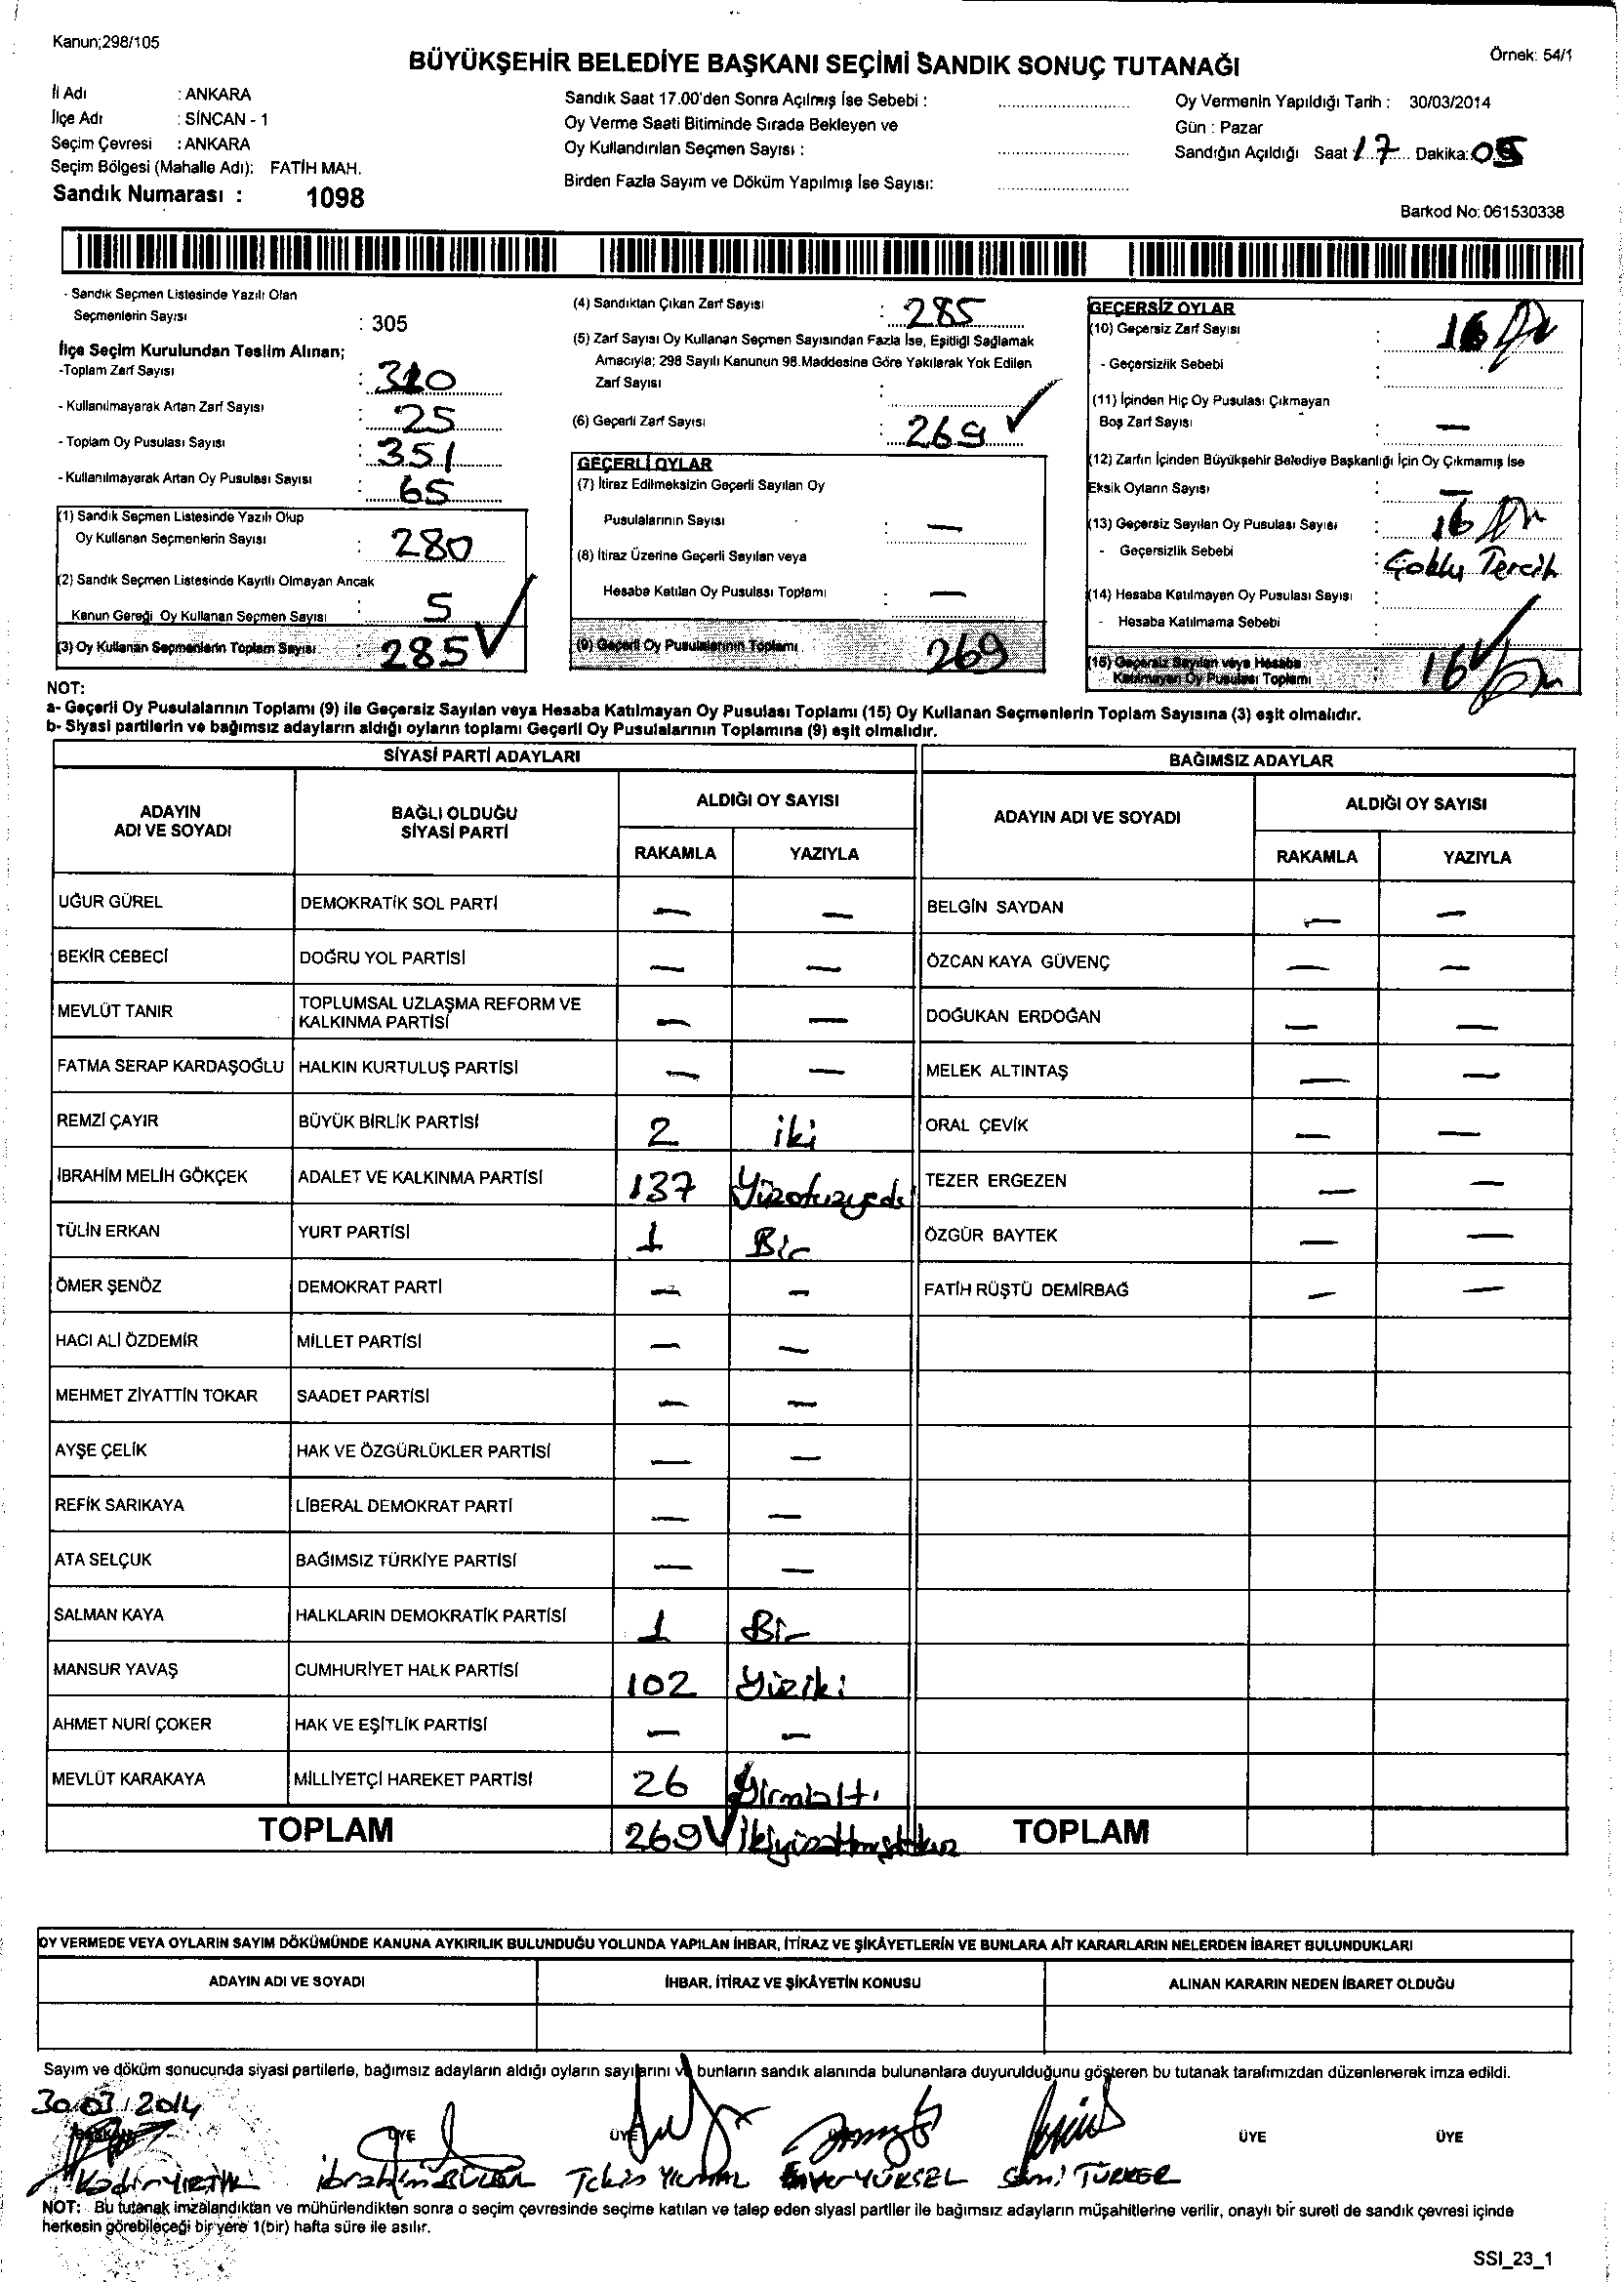 Kanun;298/105
BÜYÜKŞEHİR BELEDİYE BAŞKANI SEÇİMİ SANDIK SONUÇ TUTANAĞI
Örnek: 54/1
İl Adı : ANKARA
İlçe Adı : SİNCAN - 1
Seçim Çevresi : ANKARA
Seçim Bölgesi (Mahalle Adı): FATİH MAH.
Sandık Numarası : 1098
Sandık Saat 17.00'den Sonra Açılmış İse Sebebi :
Oy Verme Saati Bitiminde Sırada Bekleyen ve
Oy Kullandırılan Seçmen Sayısı :
Birden Fazla Sayım ve Döküm Yapılmış İse Sayısı:
Oy Vermenin Yapıldığı Tarih : 30/03/2014
Gün : Pazar
Sandığın Açıldığı Saat 17 Dakika: 05
Barkod No: 061530338
- Sandık Seçmen Listesinde Yazılı Olan
Seçmenlerin Sayısı : 305
İlçe Seçim Kurulundan Teslim Alınan;
-Toplam Zarf Sayısı : 310
- Kullanılmayarak Artan Zarf Sayısı : 25
- Toplam Oy Pusulası Sayısı : 351
- Kullanılmayarak Artan Oy Pusulası Sayısı : 65
(1) Sandık Seçmen Listesinde Yazılı Olup
Oy Kullanan Seçmenlerin Sayısı : 280
(2) Sandık Seçmen Listesinde Kayıtlı Olmayan Ancak
Kanun Gereği Oy Kullanan Seçmen Sayısı : 5
(3) Oy Kullanan Seçmenlerin Toplam Sayısı : 285
(4) Sandıktan Çıkan Zarf Sayısı : 285
(5) Zarf Sayısı Oy Kullanan Seçmen Sayısından Fazla İse, Eşitliği Sağlamak
Amacıyla; 298 Sayılı Kanunun 98.Maddesine Göre Yakılarak Yok Edilen
Zarf Sayısı :
(6) Geçerli Zarf Sayısı : 269
GEÇERLİ OYLAR
(7) İtiraz Edilmeksizin Geçerli Sayılan Oy
Pusulalarının Sayısı : —
(8) İtiraz Üzerine Geçerli Sayılan veya
Hesaba Katılan Oy Pusulası Toplamı : —
(9) Geçerli Oy Pusulalarının Toplamı 269
GEÇERSİZ OYLAR
(10) Geçersiz Zarf Sayısı : 16
- Geçersizlik Sebebi :
(11) İçinden Hiç Oy Pusulası Çıkmayan
Boş Zarf Sayısı : —
(12) Zarfın İçinden Büyükşehir Belediye Başkanlığı İçin Oy Çıkmamış İse
Eksik Oyların Sayısı : —
(13) Geçersiz Sayılan Oy Pusulası Sayısı : 16
- Geçersizlik Sebebi : Çoklu Tercih
(14) Hesaba Katılmayan Oy Pusulası Sayısı :
- Hesaba Katılmama Sebebi :
(15) Geçersiz Sayılan veya Hesaba
Katılmayan Oy Pusulası Toplamı : 16
NOT:
a- Geçerli Oy Pusulalarının Toplamı (9) ile Geçersiz Sayılan veya Hesaba Katılmayan Oy Pusulası Toplamı (15) Oy Kullanan Seçmenlerin Toplam Sayısına (3) eşit olmalıdır.
b- Siyasi partilerin ve bağımsız adayların aldığı oyların toplamı Geçerli Oy Pusulalarının Toplamına (9) eşit olmalıdır.
SİYASİ PARTİ ADAYLARI
BAĞIMSIZ ADAYLAR
ADAYIN ADI VE SOYADI
BAĞLI OLDUĞU SİYASİ PARTİ
ALDIĞI OY SAYISI
RAKAMLA YAZIYLA
ADAYIN ADI VE SOYADI
ALDIĞI OY SAYISI
RAKAMLA YAZIYLA
UĞUR GÜREL DEMOKRATİK SOL PARTİ — — BELGİN SAYDAN — —
BEKİR CEBECİ DOĞRU YOL PARTİSİ — — ÖZCAN KAYA GÜVENÇ — —
MEVLÜT TANIR TOPLUMSAL UZLAŞMA REFORM VE KALKINMA PARTİSİ — — DOĞUKAN ERDOĞAN — —
FATMA SERAP KARDAŞOĞLU HALKIN KURTULUŞ PARTİSİ — — MELEK ALTINTAŞ — —
REMZİ ÇAYIR BÜYÜK BİRLİK PARTİSİ 2 iki ORAL ÇEVİK — —
İBRAHİM MELİH GÖKÇEK ADALET VE KALKINMA PARTİSİ 137 Yüzotuzyedi TEZER ERGEZEN — —
TÜLİN ERKAN YURT PARTİSİ 1 Bir ÖZGÜR BAYTEK — —
ÖMER ŞENÖZ DEMOKRAT PARTİ — — FATİH RÜŞTÜ DEMİRBAĞ — —
HACI ALİ ÖZDEMİR MİLLET PARTİSİ — —
MEHMET ZİYATTİN TOKAR SAADET PARTİSİ — —
AYŞE ÇELİK HAK VE ÖZGÜRLÜKLER PARTİSİ — —
REFİK SARIKAYA LİBERAL DEMOKRAT PARTİ — —
ATA SELÇUK BAĞIMSIZ TÜRKİYE PARTİSİ — —
SALMAN KAYA HALKLARIN DEMOKRATİK PARTİSİ 1 Bir
MANSUR YAVAŞ CUMHURİYET HALK PARTİSİ 102 Yüziki
AHMET NURİ ÇOKER HAK VE EŞİTLİK PARTİSİ — —
MEVLÜT KARAKAYA MİLLİYETÇİ HAREKET PARTİSİ 26 Yirmialtı
TOPLAM 269 İkiyüzaltmışdokuz TOPLAM
OY VERMEDE VEYA OYLARIN SAYIM DÖKÜMÜNDE KANUNA AYKIRILIK BULUNDUĞU YOLUNDA YAPILAN İHBAR, İTİRAZ VE ŞİKÂYETLERİN VE BUNLARA AİT KARARLARIN NELERDEN İBARET BULUNDUKLARI
ADAYIN ADI VE SOYADI İHBAR, İTİRAZ VE ŞİKÂYETİN KONUSU ALINAN KARARIN NEDEN İBARET OLDUĞU
Sayım ve döküm sonucunda siyasi partilerle, bağımsız adayların aldığı oyların sayılarını ve bunların sandık alanında bulunanlara duyurulduğunu gösteren bu tutanak tarafımızdan düzenlenerek imza edildi.
30/03/2014
ÜYE ÜYE ÜYE ÜYE
Kadir İbrahim Tekin YILMAZ Enver YÜKSEL Sami TÜRKER
NOT: Bu tutanak imzalandıktan ve mühürlendikten sonra o seçim çevresinde seçime katılan ve talep eden siyasi partiler ile bağımsız adayların müşahitlerine verilir, onaylı bir sureti de sandık çevresi içinde
herkesin görebileceği bir yere 1(bir) hafta süre ile asılır.
SSI_23_1